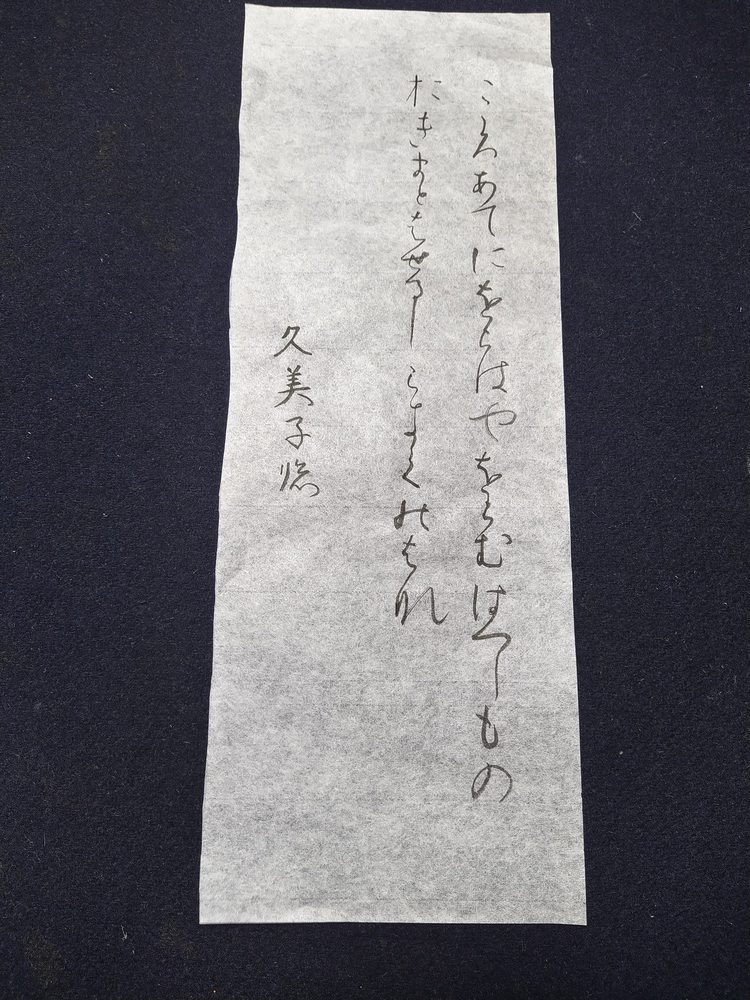 こゝろあてにをらはやをらむはつしもの
おきまとはせるしらきくのはな
久美子臨